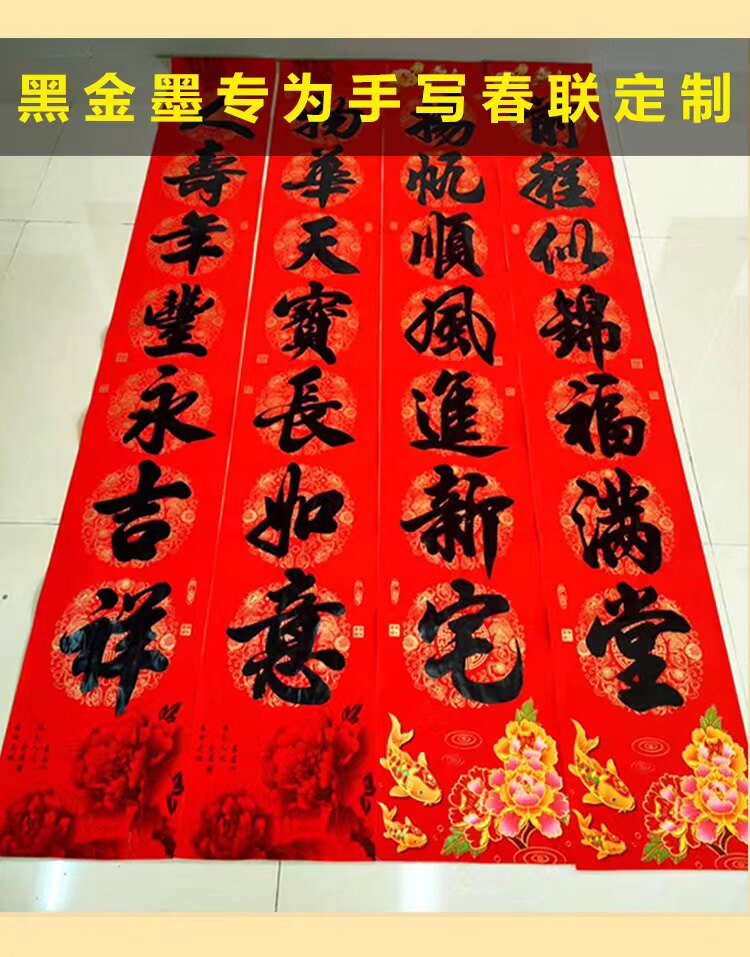 黑金墨专为手写春联定制
前程似錦福满堂
揚帆順風進新宅
物華天寶長如意
人壽年豐永吉祥